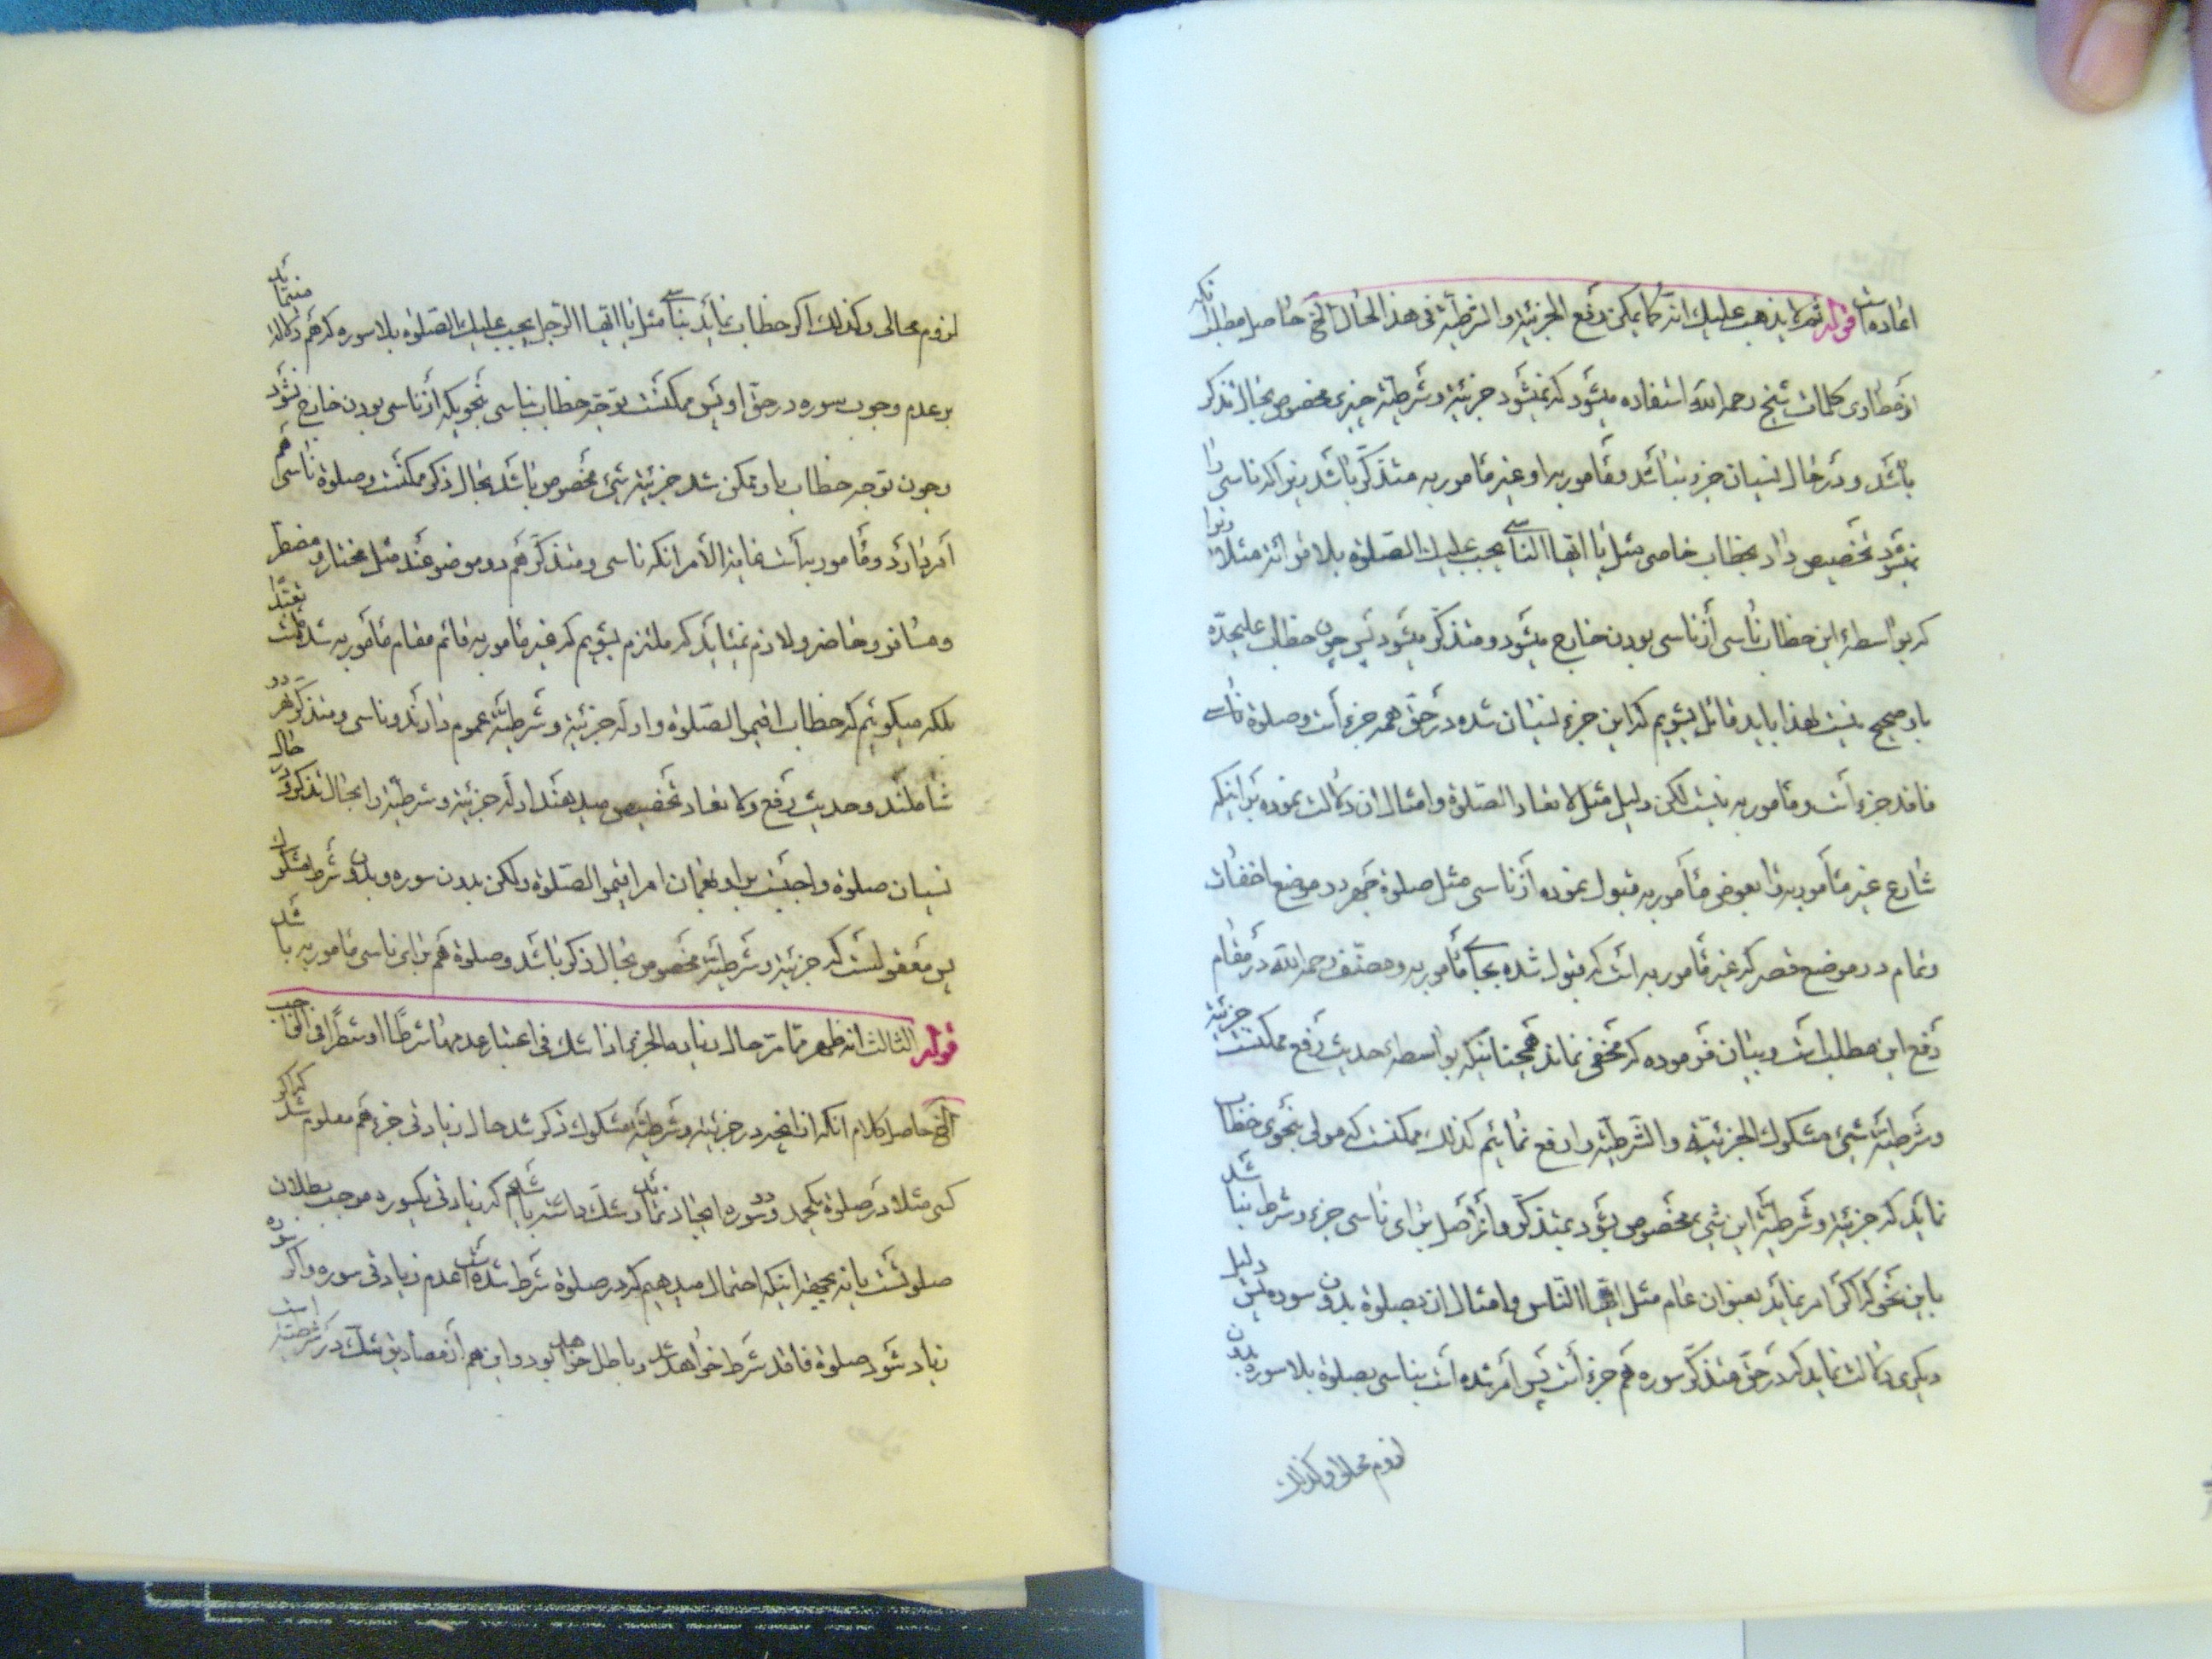 اعاده است قوله ثم لا يذهب عليك انه كما يمكن رفع الجزئية والشرطية فى هذا الحال الخ حاصل مطلب انكه
از مطاوى كلمات شيخ رحمه الله استفاده ميشود كه نميشود جزئية وشرطية چيزى مخصوص بحال تذكر
باشد ودر حال نسيان جزء نباشد ومأموربه او غير مأموربه متذكر باشد زيراكه ناسى را
نميشود تخصيص داد بخطاب خاصى مثل يا ايها الناسى يجب عليك الصلوة بلا قرائة مثلا زيرا
كه بواسطهٔ اين خطاب ناسى از ناسى بودن خارج ميشود ومتذكر ميشود پس چون خطاب عليحده
باو صحيح نيست لهذا بايد قائل بشويم كه اين جزء نسيان شده در حق همه جزء است وصلوة ناسى
فاقد جزء است ومأموربه نيست لكن دليل مثل لا تعاد الصلوة وامثال ان دلالت نموده بر اينكه
شارع غير مأموربه را بعوض مأموربه قبول نموده از ناسى مثل صلوة جهر در موضع اخفات
وتمام در موضع قصر كه غير مأموربه است كه قبول شده بجاى مأموربه ومصنف رحمه الله در مقام
رفع اين مطلب است وبيان فرموده كه مخفى نماند همچنانيكه بواسطهٔ حديث رفع ممكنست جزئية
وشرطية شيئ مشكوك الجزئية والشرطية را رفع نمائيم كذلك ممكنست كه مولى بنحوى خطاب
نمايد كه جزئية وشرطية اين شيئ مخصوص بشود بمتذكر واز اصل براى ناسى جزء وشرط نباشد
باين نحو كه اكر امر نمايد بعنوان عام مثل ايها الناس وامثال ان بصلوة بدون سوره پس دليل
ديكرى دلالت نمايد كه در حق متذكر سوره هم جزء است پس امر شده است بناسى بصلوة بلا سوره بدون
لزوم محالى وكذلك
لزوم محالى وكذلك اكر خطاب نمايد بناسى مثل يا ايها الرجل يجب عليك الصلوة بلا سوره كه هم دلالة مينمايد
بر عدم وجوب سوره در حق او پس ممكنست توجه خطاب بناسى بنحويكه از ناسى بودن خارج نشود
وچون توجه خطاب باو ممكن شد جزئية شيئ مخصوص باشد بحال ذكر ممكنست وصلوة ناسى هم
امر دارد ومأموربه است غاية الأمر انكه ناسى ومتذكر هم دو موضوعند مثل مختار ومضطر
ومسافر وحاضر ولازم نميايد كه ملتزم بشويم كه غير مأموربه قائم مقام مأموربه شده است تعبدا
بلكه ميكوئيم كه خطاب اقيموا الصلوة وادله جزئية وشرطية عموم دارند وناسى ومتذكر هر دو را
شاملند وحديث رفع ولا تعاد تخصيص ميدهند ادله جزئية وشرطية را بحال تذكر ودر حال
نسيان صلوة واجبست بر او بهمان امر اقيموا الصلوة ولكن بدون سوره وبدون شرط مشكوك
پس معقولست كه جزئية وشرطية مخصوص بحال ذكر باشد وصلوة هم براى ناسى مأموربه باشد
قوله الثالث انه ظهر مما مر حال زيادة الجزء اذا شك فى اعتبار عدمها شرطا او شطرا فى الواجب
الخ حاصل كلام انكه از انچه در جزئية وشرطية مشكوك ذكر شد حال زيادتى جزء هم معلوم شد كه اكر
كسى مثلا در صلوة يكحمد ودو سوره ايجاد نمايد وشك داشته باشيم كه زيادتى يكسوره موجب بطلان
صلوتست يا نه بجهة اينكه احتمال ميدهيم كه در صلوة شرط شده است عدم زيادتى سوره واكر سوره
زياد شود صلوة فاقد شرط خواهد شد وباطل خواهد بود واين هم از مصاديق شك در شرطية است